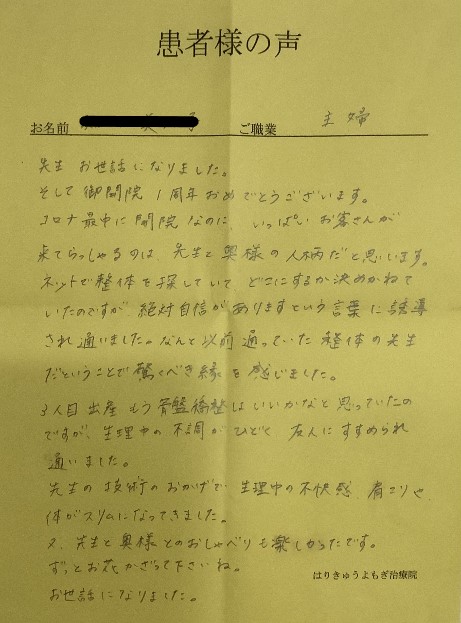 患者様の声
お名前 ご職業 主婦
先生 お世話になりました。
そして御開院1周年おめでとうございます。
コロナ最中に開院なのに、いっぱいお客さんが
来てらっしゃるのは、先生と奥様の人柄だと思います。
ネットで整体を探していて、どこにするか決めかねて
いたのですが、絶対自信がありますという言葉に誘導
され通いました。なんと以前通っていた整体の先生
だということで驚くべき縁を感じました。
3人目出産もう骨盤矯整はいいかなと思っていたの
ですが、生理中の不調がひどく友人にすすめられ
通いました。
先生の技術のおかげで生理中の不快感、肩こりや
体がスリムになってきました。
又、先生と奥様とのおしゃべりも楽しかったです。
ずっとお花かざって下さいね。
はりきゅうよもぎ治療院
お世話になりました。